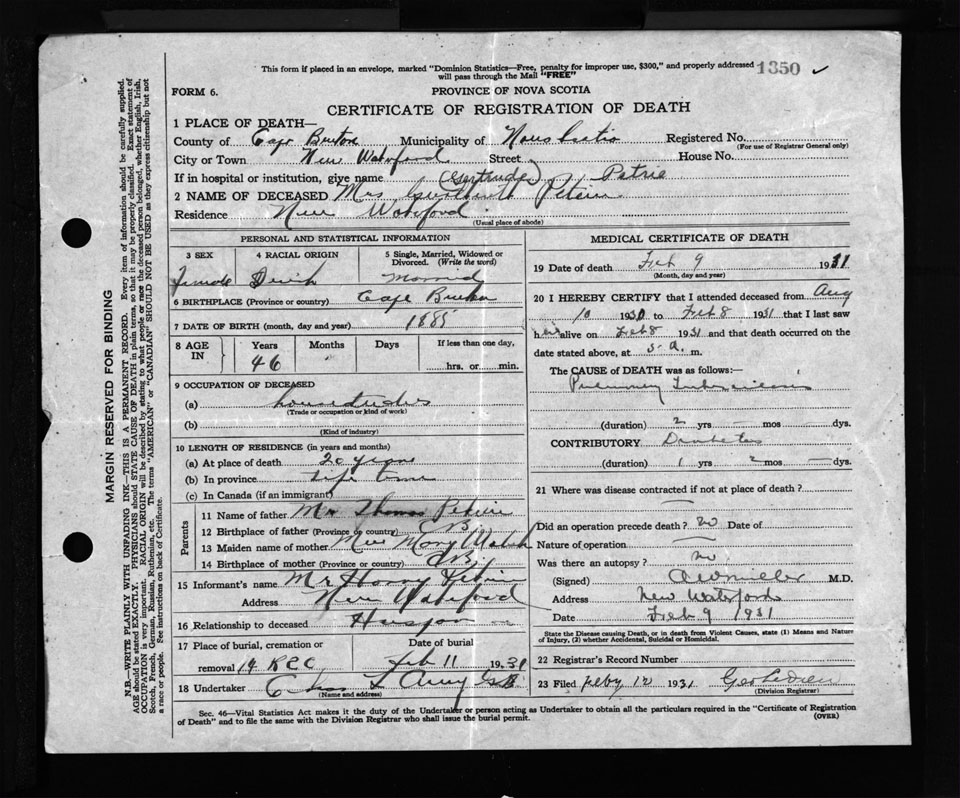 This form if placed in an envelope, marked "Dominion Statistics—Free, penalty for improper use, $300," and properly addressed 1350 ✓
will pass through the Mail "FREE"
FORM 6.
PROVINCE OF NOVA SCOTIA
CERTIFICATE OF REGISTRATION OF DEATH
1 PLACE OF DEATH—
County of Cape Breton Municipality of Registered No.
(For use of Registrar General only)
City or Town New Waterford Street House No.
If in hospital or institution, give name (Gertrude) Petrie
2 NAME OF DECEASED Mrs
Residence New Waterford
(Usual place of abode)
PERSONAL AND STATISTICAL INFORMATION
3 SEX 4 RACIAL ORIGIN 5 Single, Married, Widowed or Divorced. (Write the word)
Female Married
6 BIRTHPLACE (Province or country) Cape Breton
7 DATE OF BIRTH (month, day and year) 1885
8 AGE IN Years Months Days If less than one day,
46 hrs. or min.
9 OCCUPATION OF DECEASED
(a)
(Trade or occupation or kind of work)
(b)
(Kind of industry)
10 LENGTH OF RESIDENCE (in years and months)
(a) At place of death 20 years
(b) In province Life time
(c) In Canada (if an immigrant)
Parents
11 Name of father Mr Thomas
12 Birthplace of father (Province or country) C B
13 Maiden name of mother Miss Mary Walsh
14 Birthplace of mother (Province or country) C B
15 Informant's name Mr
Address New Waterford
16 Relationship to deceased
17 Place of burial, cremation or removal Date of burial
14 R C C Feb 11 1931
18 Undertaker
(Name and address)
MEDICAL CERTIFICATE OF DEATH
19 Date of death Feb 9 1931
(Month, day and year)
20 I HEREBY CERTIFY that I attended deceased from Aug
10 1930 to Feb 8 1931 that I last saw
her alive on Feb 8 1931 and that death occurred on
date stated above, at 5 A. m.
The CAUSE of DEATH was as follows:—
Pulmonary Tuberculosis
(duration) 2 yrs mos dys.
CONTRIBUTORY Diabetes
(duration) 1 yrs 2 mos dys.
21 Where was disease contracted if not at place of death?
Did an operation precede death? no Date of
Nature of operation
Was there an autopsy? no
(Signed) M.D.
Address New Waterford
Date Feb 9 1931
State the Disease causing Death, or in death from Violent Causes, state (1) Means and Nature
of Injury, (2) whether Accidental, Suicidal or Homicidal.
22 Registrar's Record Number
23 Filed Feby 12 1931
(Division Registrar)
Sec. 46—Vital Statistics Act makes it the duty of the Undertaker or person acting as Undertaker to obtain all the particulars required in the "Certificate of Registration
of Death" and to file the same with the Division Registrar who shall issue the burial permit.
(OVER)
MARGIN RESERVED FOR BINDING
N.B.—WRITE PLAINLY WITH UNFADING INK—THIS IS A PERMANENT RECORD. Every item of information should be carefully supplied.
AGE should be stated EXACTLY. PHYSICIANS should STATE CAUSE OF DEATH in plain terms, so that it may be properly classified. Exact statement of
OCCUPATION is very important. RACIAL ORIGIN will be described by stating to what people or race the deceased person belonged, whether English, Irish,
Scotch, French, German, Russian, Ruthenian, etc. The terms "AMERICAN" or "CANADIAN" SHOULD NOT BE USED as they express citizenship but not
a race or people. See instructions on back of Certificate.